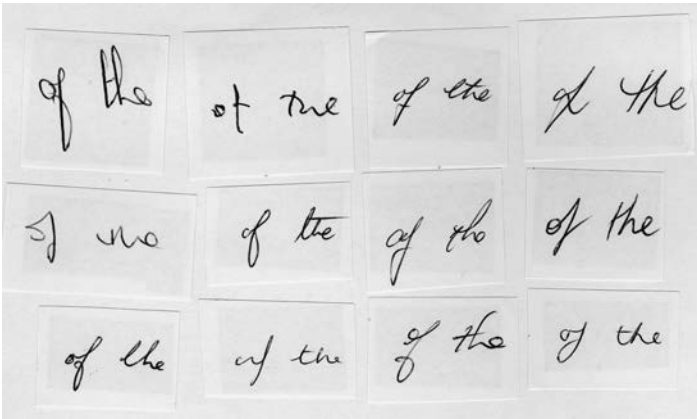 of the of the of the of the
of the of the of the of the
of the of the of the of the